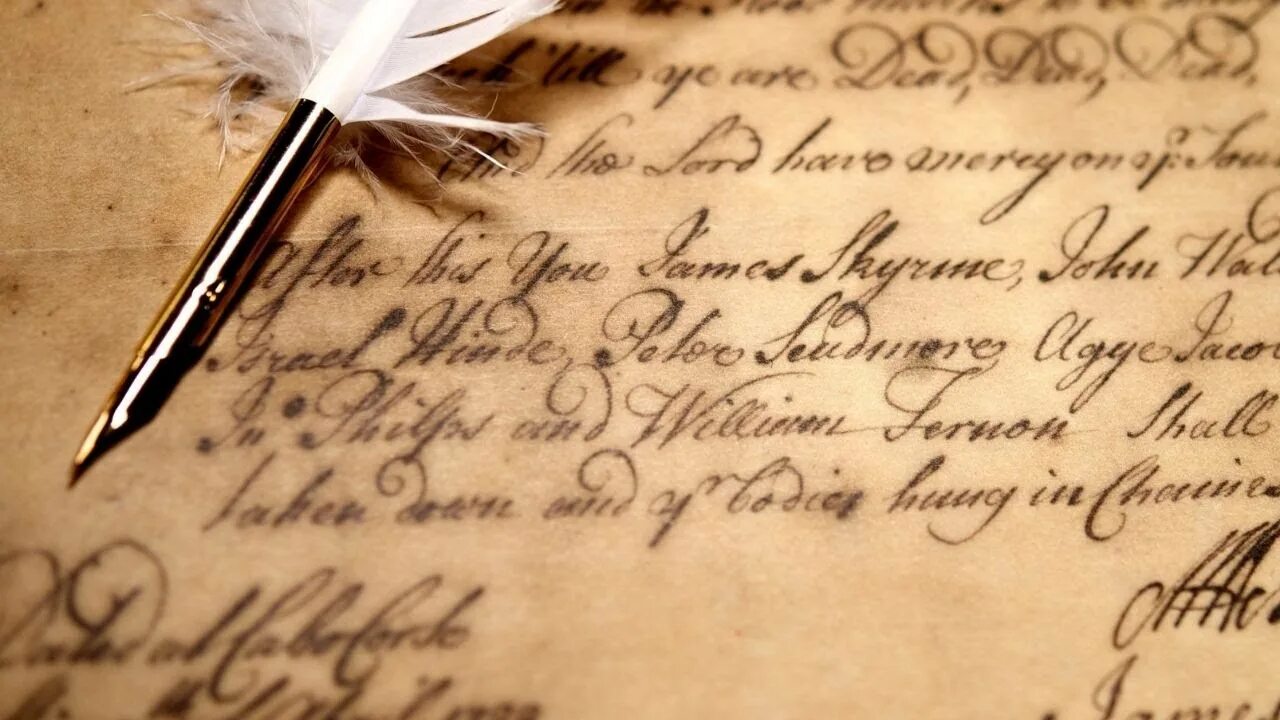 till ye are Dead, Dead, Dead,
And the Lord have mercy on yr. Sou
After this You James Skyrme, John Wal
Israel Hinde, Peter Scudmore, Agge Jaco
Jno Philips and William Fernon Shall
taken down and yr bodies hung in Chaines
Dated at Cabo Corso
James